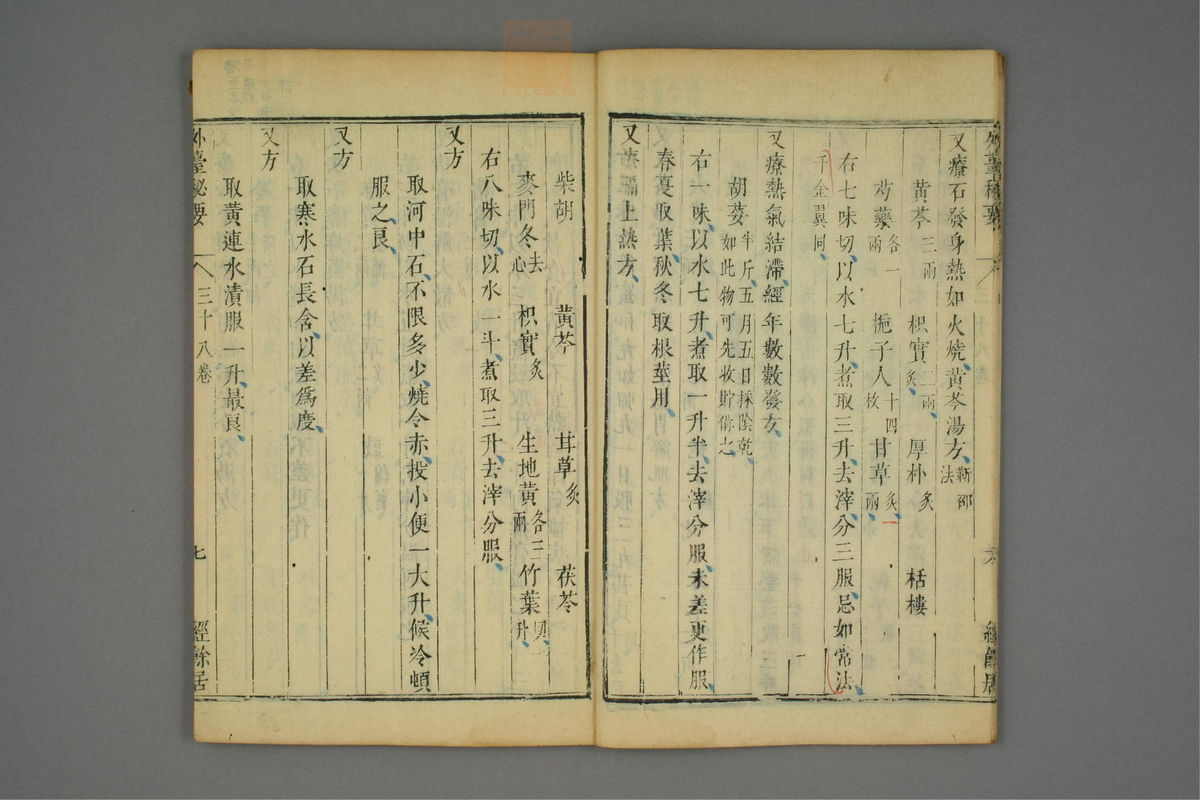 又療石發身熱如火燒黃芩湯方靳邵法
黃芩三兩 枳實炙二兩 厚朴炙 栝樓
芍藥各一兩 梔子人十四枚 甘草炙一兩
右七味切以水七升煮取三升去滓分三服忌如常法
千金翼同
又療熱氣結滯經年數數發方
胡荽半斤五月五日採陰乾如此物可先收貯備之
右一味以水七升煮取一升半去滓分服未差更作服
春夏取葉秋冬取根莖用
又療上熱方
柴胡 黃芩 甘草炙 茯苓
麥門冬去心 枳實炙 生地黃各三兩 竹葉切一升
右八味切以水一斗煮取三升去滓分服
又方
取河中石不限多少燒令赤投小便一大升候冷頓
服之良
又方
取寒水石長含以差爲度
又方
取黃連水漬服一升最良
外臺秘要 三十八卷 七 經餘居